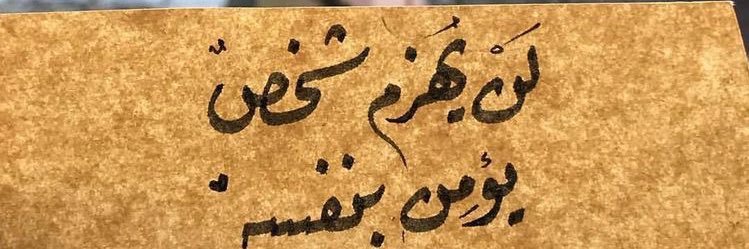 لَنْ يُهزم شخصٌ
يؤمِن بنفسه.